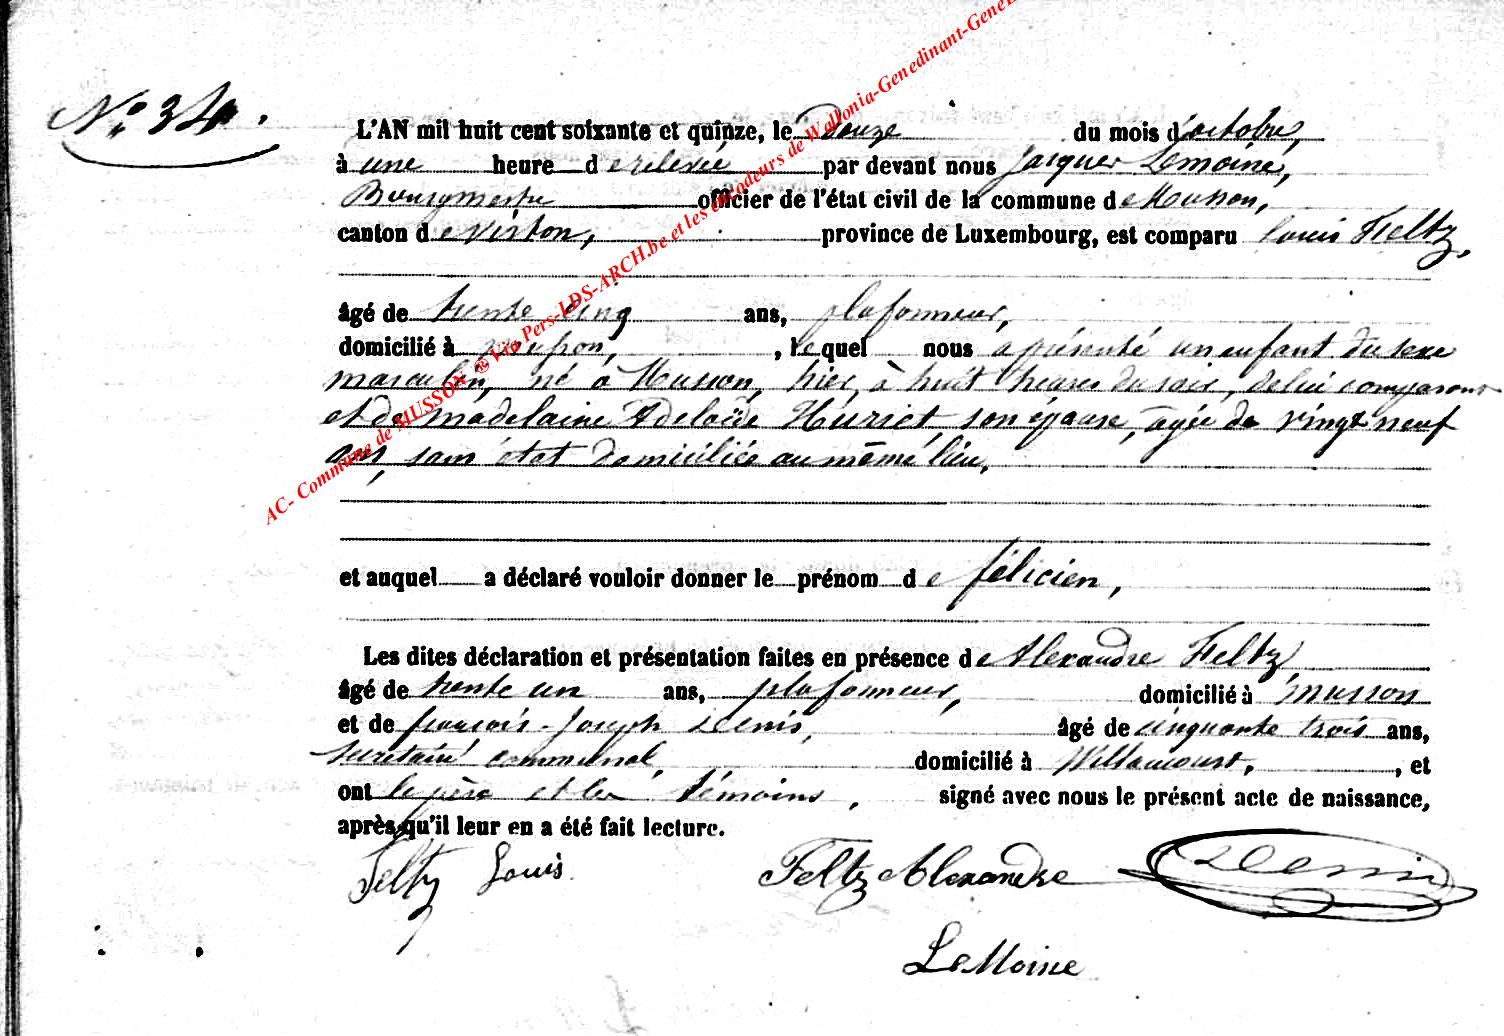 N° 34.
L'AN mil huit cent soixante et quinze, le Douze du mois d'octobre,
à une heure de relevée par devant nous Jacques Lemoine,
Bourgmestre officier de l'état civil de la commune de Musson,
canton de Virton, province de Luxembourg, est comparu Louis Feltz,
âgé de trente cinq ans, plafonneur,
domicilié à Musson, , lequel nous a présenté un enfant du sexe
masculin, né à Musson, hier, à huit heures du soir, de lui comparant
et de Madelaine Adeloïde Huriet son épouse, agée de vingt neuf
ans, sans état domiciliée au même lieu.
et auquel a déclaré vouloir donner le prénom de félicien,
Les dites déclaration et présentation faites en présence de Alexandre Feltz,
âgé de trente un ans, plafonneur, domicilié à Musson
et de françois-Joseph Denis, âgé de cinquante trois ans,
Secrétaire communal, domicilié à Willancourt, , et
ont le père et les témoins, signé avec nous le présent acte de naissance,
après qu'il leur en a été fait lecture.
Feltz Louis Feltz Alexandre Denis
LeMoine
AC- Commune de MUSSON ® Via Pers-LDS-ARCH.be et les encodeurs de Wallonia-Genedinant-GeneL